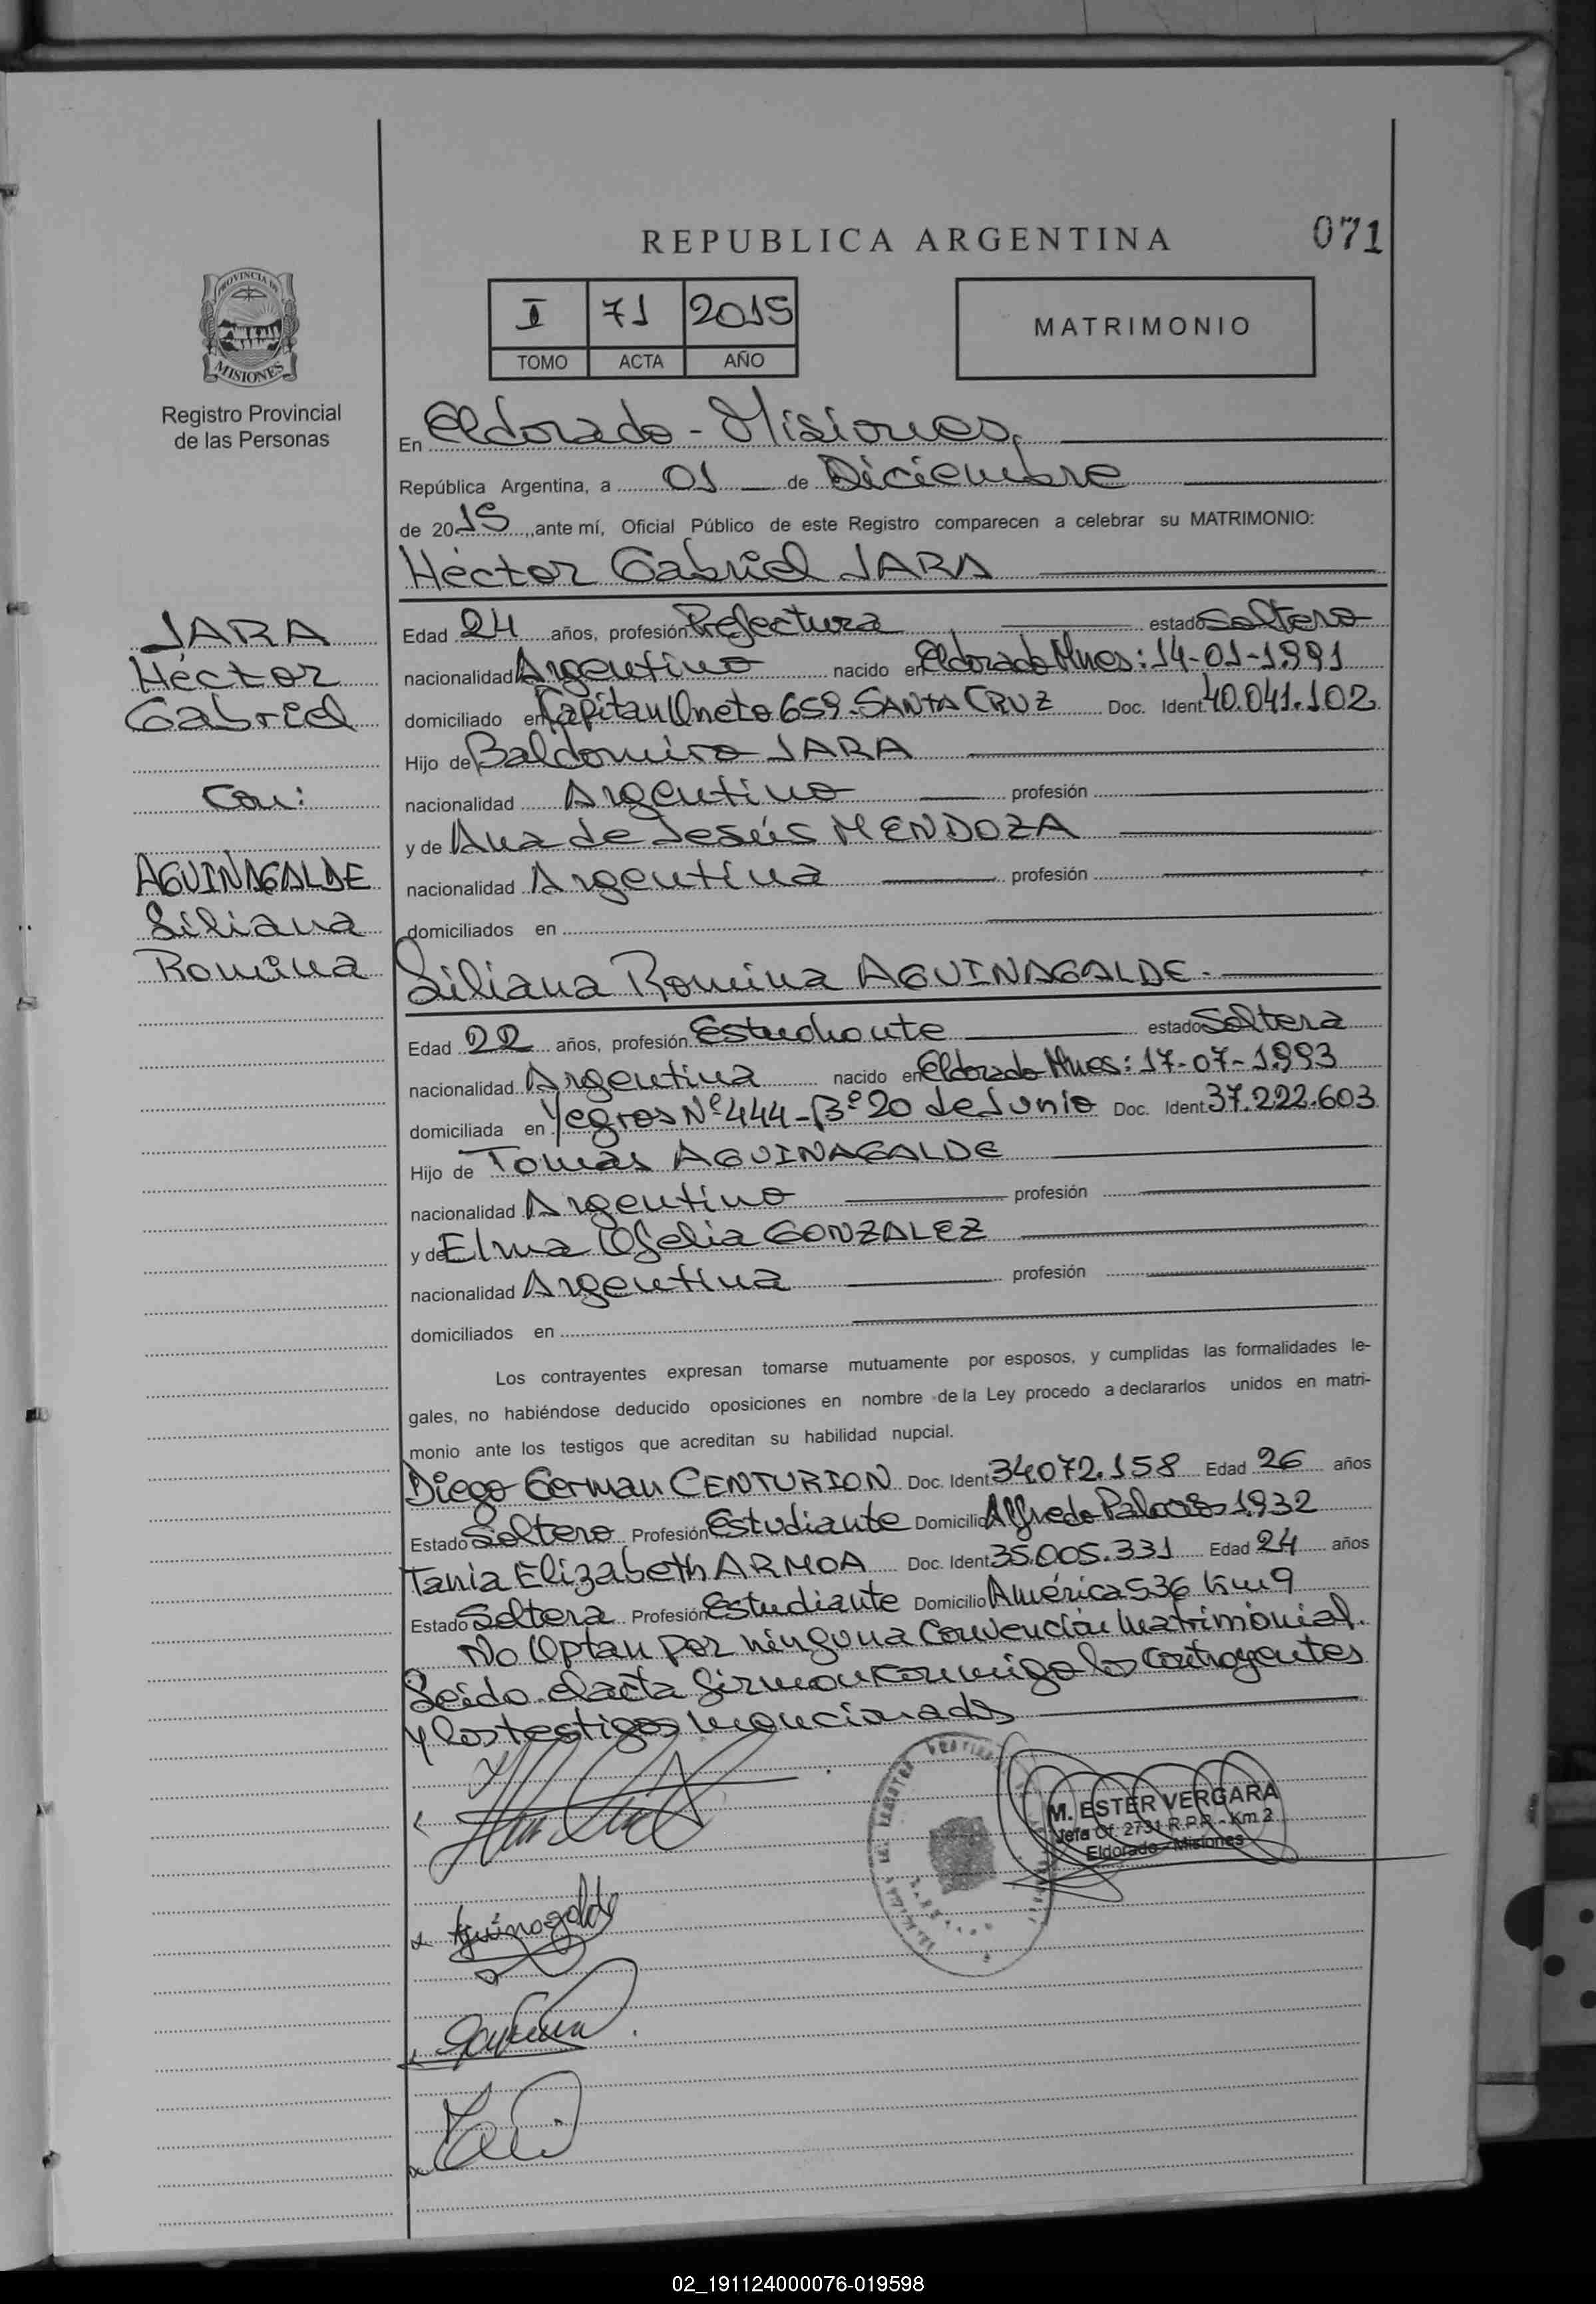 REPUBLICA ARGENTINA
071
PROVINCIA DE
MISIONES
Registro Provincial
de las Personas
I 71 2015
TOMO ACTA AÑO
MATRIMONIO
En Eldorado - Misiones,
República Argentina, a 01 de Diciembre
de 2015, ante mí, Oficial Público de este Registro comparecen a celebrar su MATRIMONIO:
Héctor Gabriel JARA
JARA
Héctor
Gabriel
Con:
AGUINAGALDE
Liliana
Romina
Edad 24 años, profesión Prefectura estado Soltero
nacionalidad Argentino nacido en Eldorado Mnes: 14-01-1991
domiciliado en Capitan Oneto 659-SANTA CRUZ Doc. Ident 40.041.102
Hijo de Baldomiro JARA
nacionalidad Argentino profesión
y de Ana de Jesús MENDOZA
nacionalidad Argentina profesión
domiciliados en
Liliana Romina AGUINAGALDE.
Edad 22 años, profesión Estudiante estado Soltera
nacionalidad Argentina nacido en Eldorado Mnes: 17-07-1993
domiciliada en Yegros Nº 444-Bº 20 de Junio Doc. Ident 37.222.603
Hijo de Tomás AGUINAGALDE
nacionalidad Argentino profesión
y de Elma Ofelia GONZALEZ
nacionalidad Argentina profesión
domiciliados en
Los contrayentes expresan tomarse mutuamente por esposos, y cumplidas las formalidades le-
gales, no habiéndose deducido oposiciones en nombre de la Ley procedo a declararlos unidos en matri-
monio ante los testigos que acreditan su habilidad nupcial.
Diego German CENTURION Doc. Ident 34.072.158 Edad 26 años
Estado Soltero Profesión Estudiante Domicilio Alfredo Palacios 1932
Tania Elizabeth ARMOA Doc. Ident 35.005.331 Edad 24 años
Estado Soltera Profesión Estudiante Domicilio América 536 Km 9
No Optan por ninguna Convención Matrimonial.
Leido el acta firman conmigo los contrayentes
y los testigos mencionados
M. ESTER VERGARA
Jefa Of. 2731 R.P.P. - Km 2
Eldorado - Misiones
Aguinagalde
02_191124000076-019598